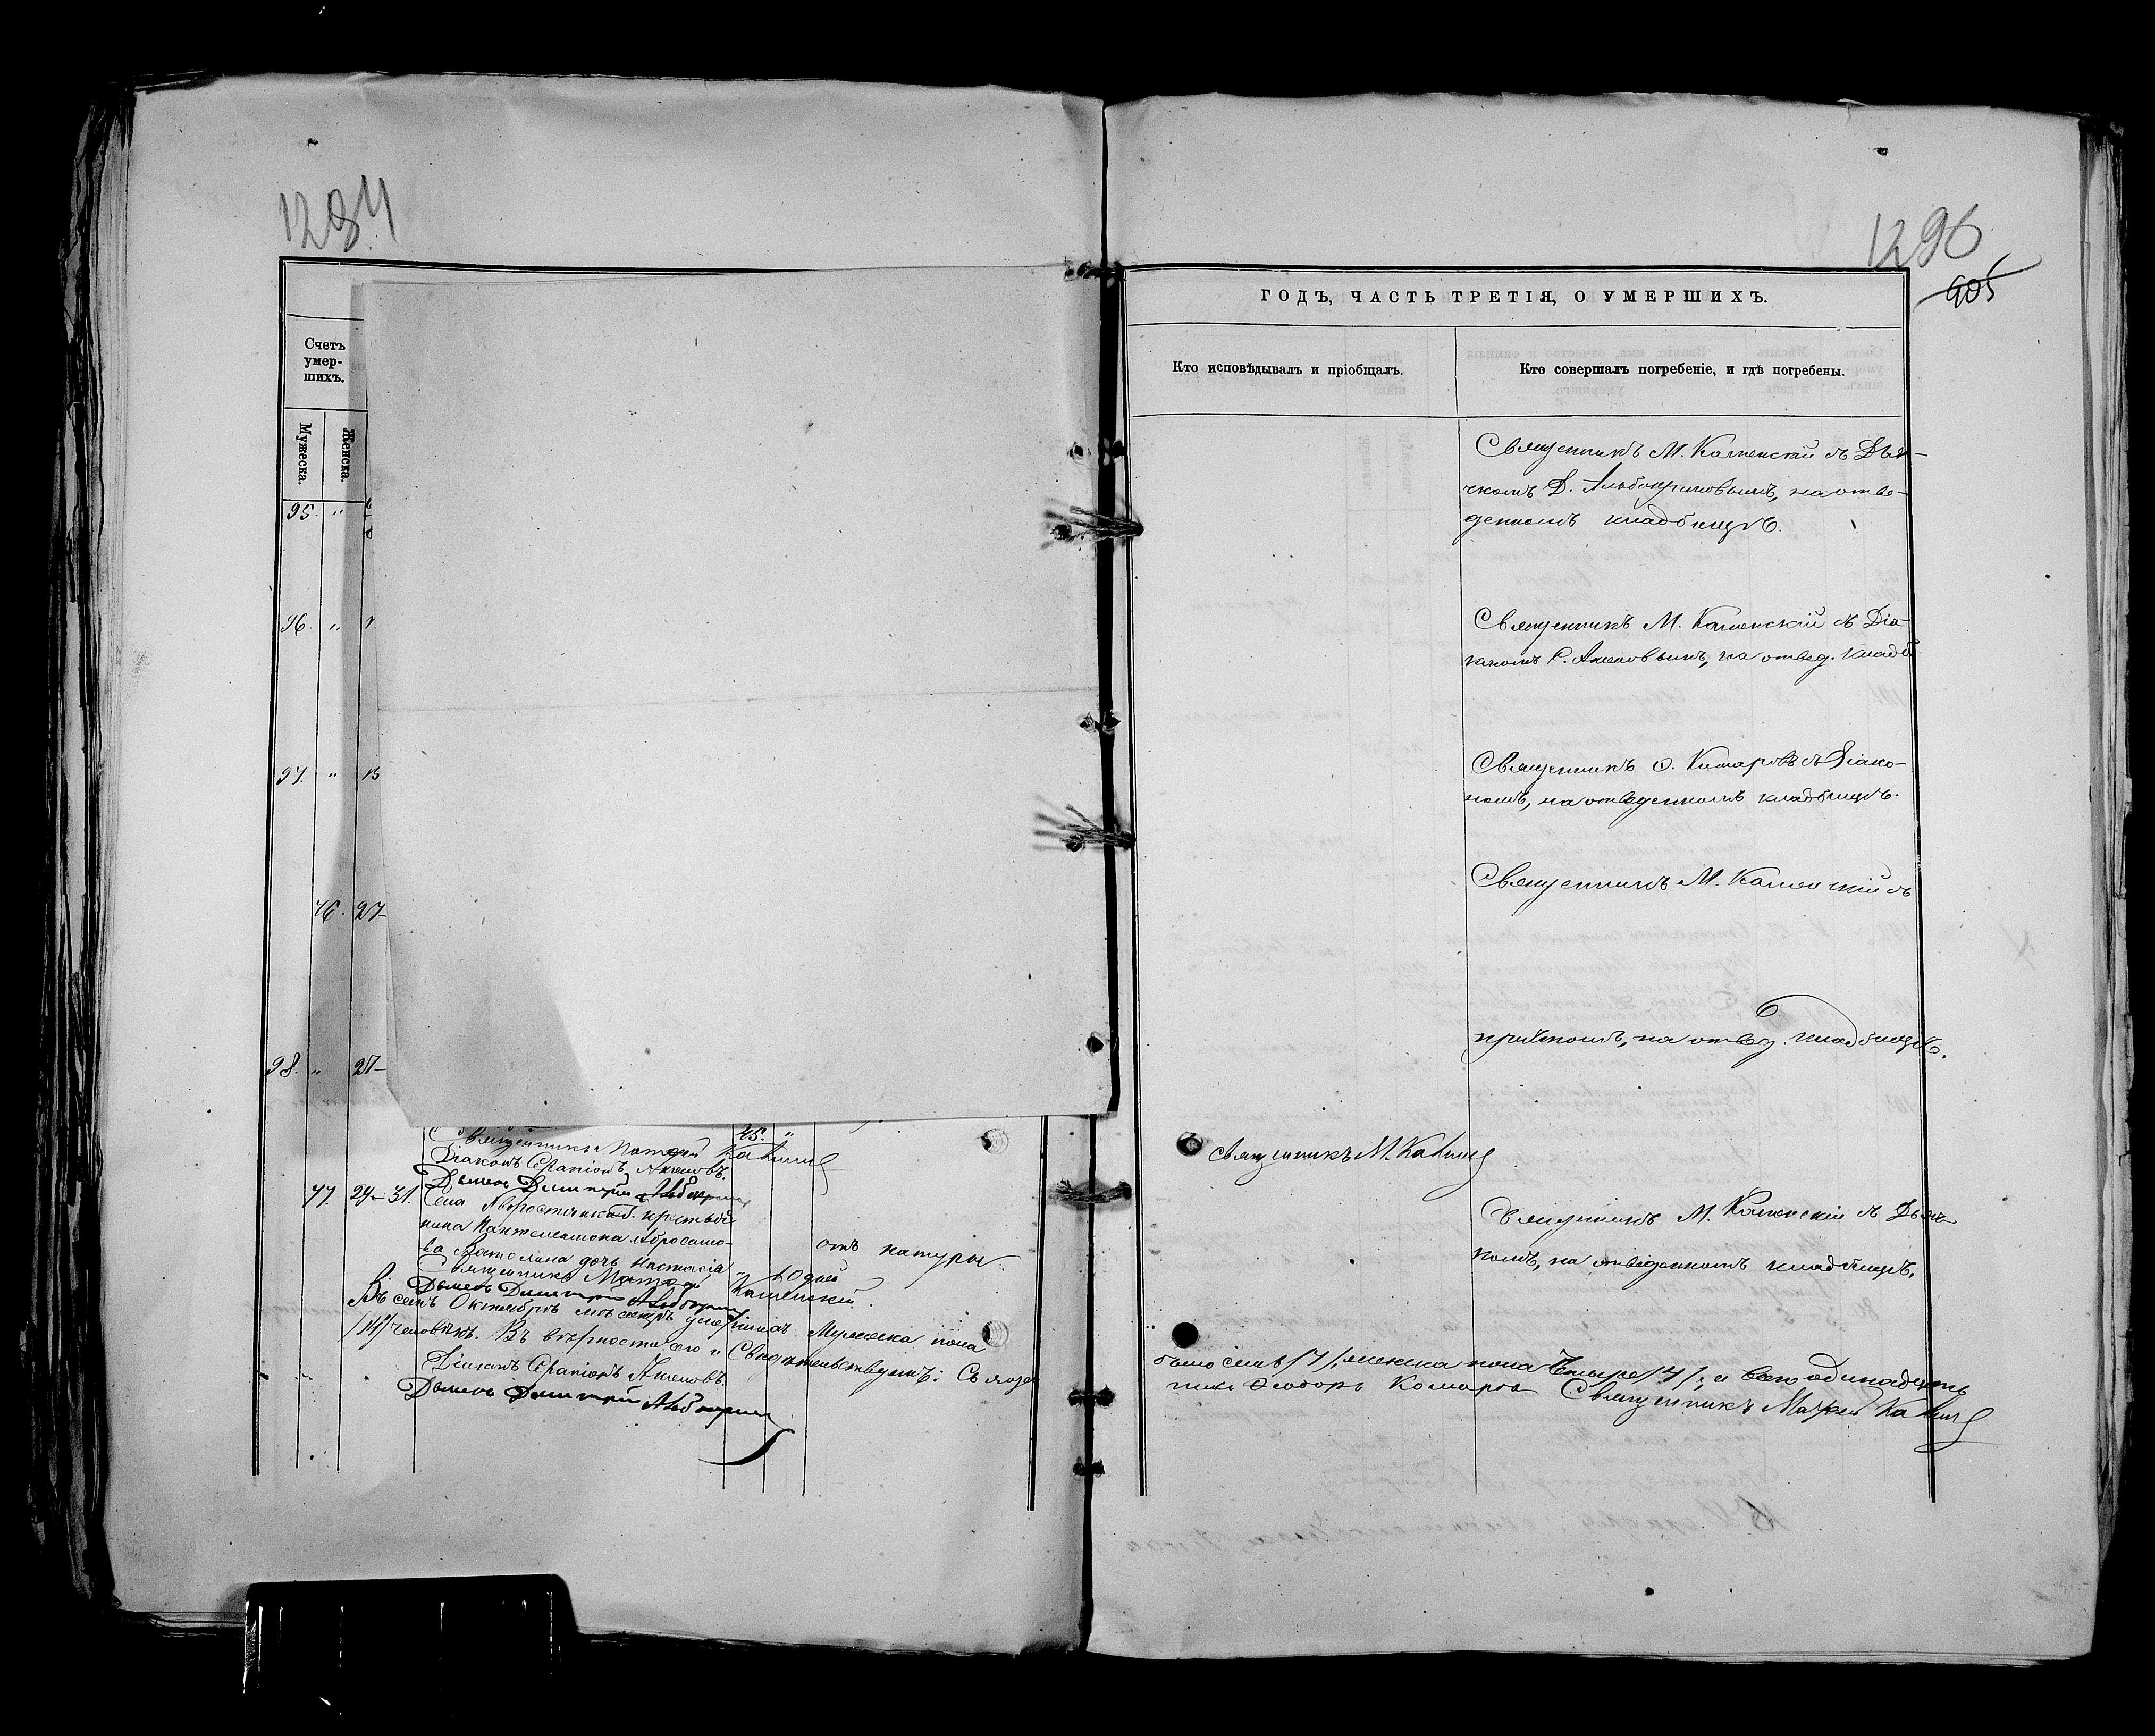 1284
Счетъ
умер-
шихъ.
Мужеска.
Женска.
95. "
96. "
97. "
46. 27
98. " 27
45. "
Священникъ Матѳей
Діаконъ Серапіонъ Акеновъ.
Дьячекъ Димитрій
47. 29 31. Села крестья-
нина Пантелеимона
дочь Настасія
отъ натуры
" 10 дней
Священникъ Матѳей Каменскій.
Дьячекъ Димитрій
Въ семъ Октябрѣ мѣсяцѣ умершихъ Мужеска пола
человѣкъ. Въ вѣрности сего и Свидѣтельствуемъ: Священ
Діаконъ Серапіонъ Акеновъ.
Дьячекъ Димитрій
1296
905
ГОДЪ, ЧАСТЬ ТРЕТІЯ, О УМЕРШИХЪ.
Кто исповѣдывалъ и пріобщалъ.
Кто совершалъ погребеніе, и гдѣ погребены.
Священникъ М. Каменскій съ Дья-
чкомъ Д. на отве-
денномъ кладбищѣ.
Священникъ М. Каменскій съ Діа-
кономъ С. Акеновымъ, на отвед. кладб.
Священникъ Ѳ. Комаровъ съ Діако-
номъ, на отведенномъ кладбищѣ.
Священникъ М. Каменскій съ
причтомъ, на отвед. кладбищѣ.
Священникъ М.
Священникъ М. Каменскій съ Дьяч-
комъ, на отведенномъ кладбищѣ.
было семь /7/, женска пола Четыре /4/; а всего одинадцать
никъ Ѳеодоръ Комаровъ Священникъ Матѳей